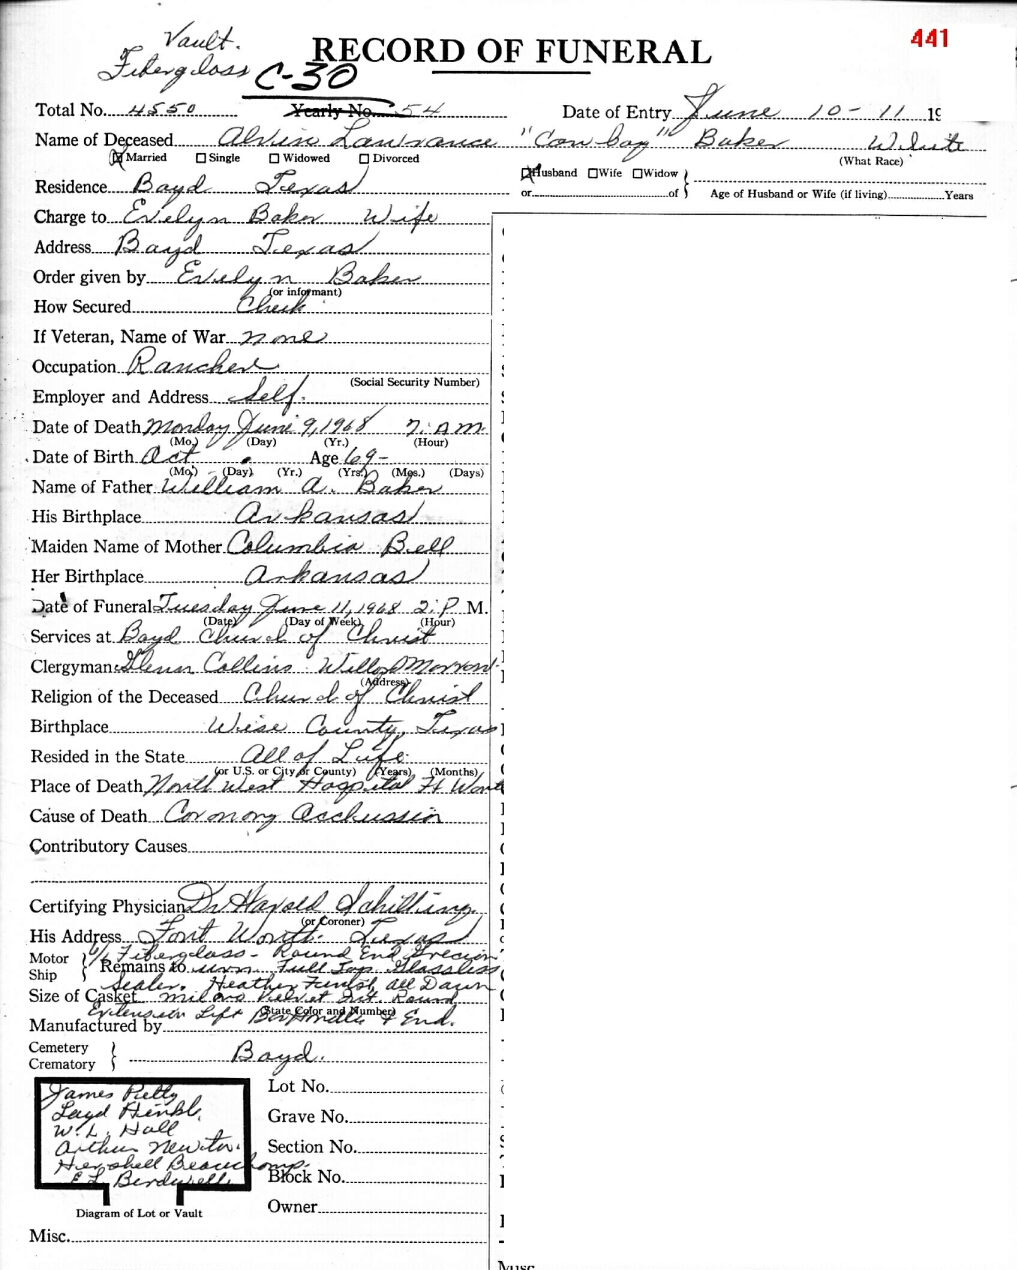 Vault.
Fiberglass
RECORD OF FUNERAL
441
C-30
Total No. 4550 Yearly No. 54 Date of Entry June 10-11 19
Name of Deceased Alvin Lawrance "Cowboy" Baker White
Married Single Widowed Divorced (What Race)
Husband Wife Widow
Residence Boyd Texas or of Age of Husband or Wife (if living) Years
Charge to Evelyn Baker Wife
Address Boyd Texas
Order given by Evelyn Baker
(or informant)
How Secured Check
If Veteran, Name of War none
Occupation Rancher
(Social Security Number)
Employer and Address Self.
Date of Death Monday June 9, 1968 7: A M.
(Mo.) (Day) (Yr.) (Hour)
Date of Birth Oct Age 69-
(Mo.) (Day) (Yr.) (Yrs.) (Mos.) (Days)
Name of Father William A. Baker
His Birthplace Arkansas
Maiden Name of Mother Columbia Bell
Her Birthplace Arkansas
Date of Funeral Tuesday June 11, 1968 2: P M.
(Date) (Day of Week) (Hour)
Services at Boyd Church of Christ
Clergyman Glenn Collins
(Address)
Religion of the Deceased Church of Christ
Birthplace Wise County, Texas
Resided in the State All of Life
(or U.S. or City or County) (Years) (Months)
Place of Death North West Hospital Ft Wort
Cause of Death Coronory Occlussion
Contributory Causes
Certifying Physician Dr Harold Schilling
(or Coroner)
His Address Fort Worth Texas
Motor Ship 6/6 Fiberglass - Round End Grecian
Remains to urn Full Top Glassless
Sealer. Heather Finish all Dawn
Size of Casket Velvet Int. Round
(State Color and Number)
Extension Lift & End.
Manufactured by
Cemetery
Crematory Boyd.
James Petty
Loyd Hinkl
W. L. Hall
Arthur Newton
Hershell Beauchamp.
E L Birdwell
Lot No.
Grave No.
Section No.
Block No.
Owner
Diagram of Lot or Vault
Misc.